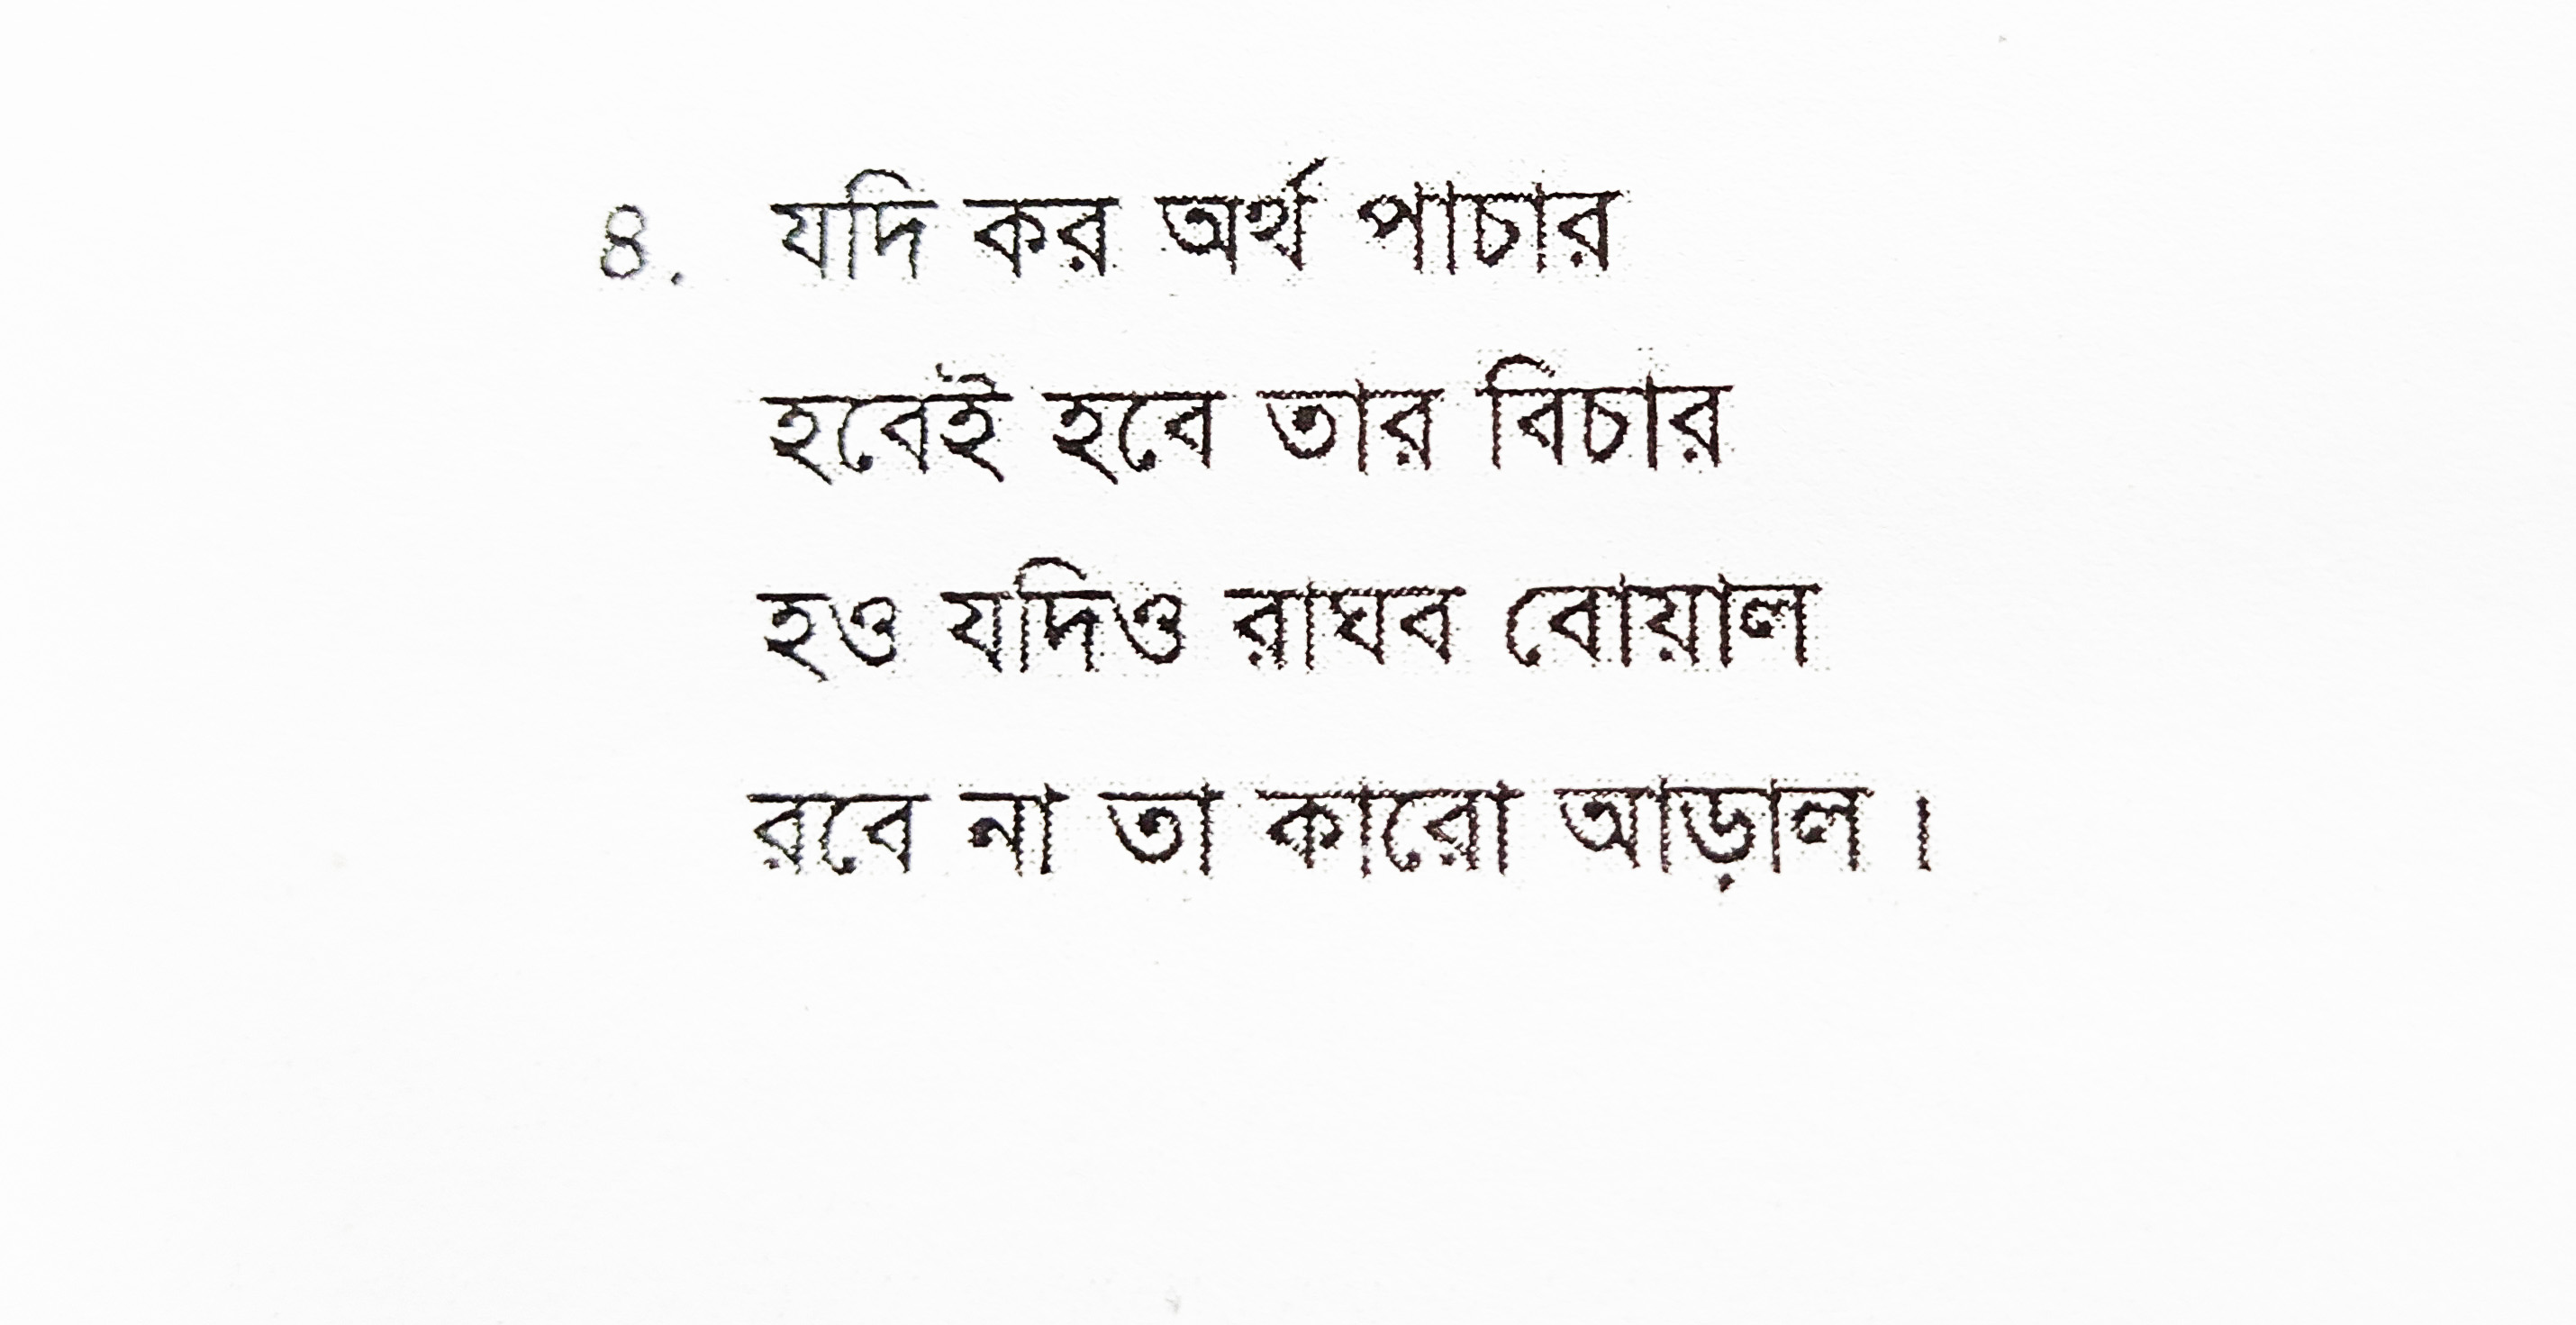 ৪. যদি কর অর্থ পাচার
হবেই হবে তার বিচার
হও যদিও রাঘব বোয়াল
রবে না তা কারো আড়াল ।